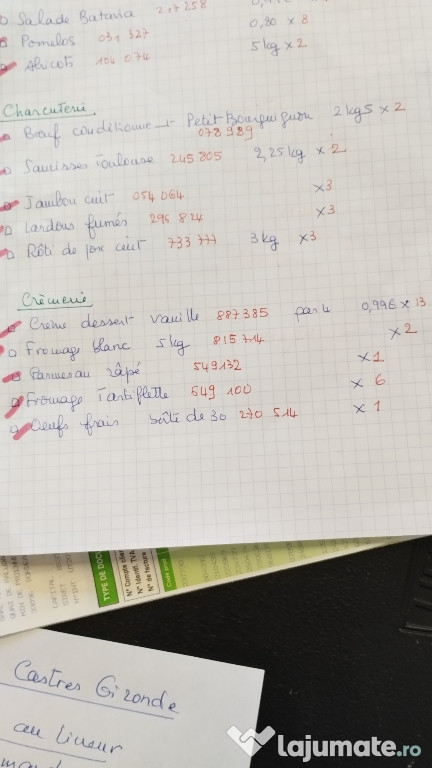 Salade Batavia 217 258
Pomelos 031 327 0,80 x 8
Abricots 104 074 5 kg x 2
Charcuterie
Bœuf Petit Bourguignon 2 kg5 x 2
078 989
Saucisses Toulouse 245 805 2,25 kg x 2
Jambon cuit 054 064 x3
Lardons fumés 295 824 x3
Rôti de porc cuit 733 777 3 kg x3
Crèmerie
Crème dessert vanille 887385 par 4 0,99€ x 13
Fromage blanc 5 kg 815714 x2
Parmesan râpé 549132 x1
Fromage Tartiflette 649 100 x 6
Oeufs frais boîte de 30 270 514 x 1
TYPE DE DOCU
N° Compte clie
N° Identif. TVA
N° de facture
Castres Gironde
au Liusur
lajumate.ro